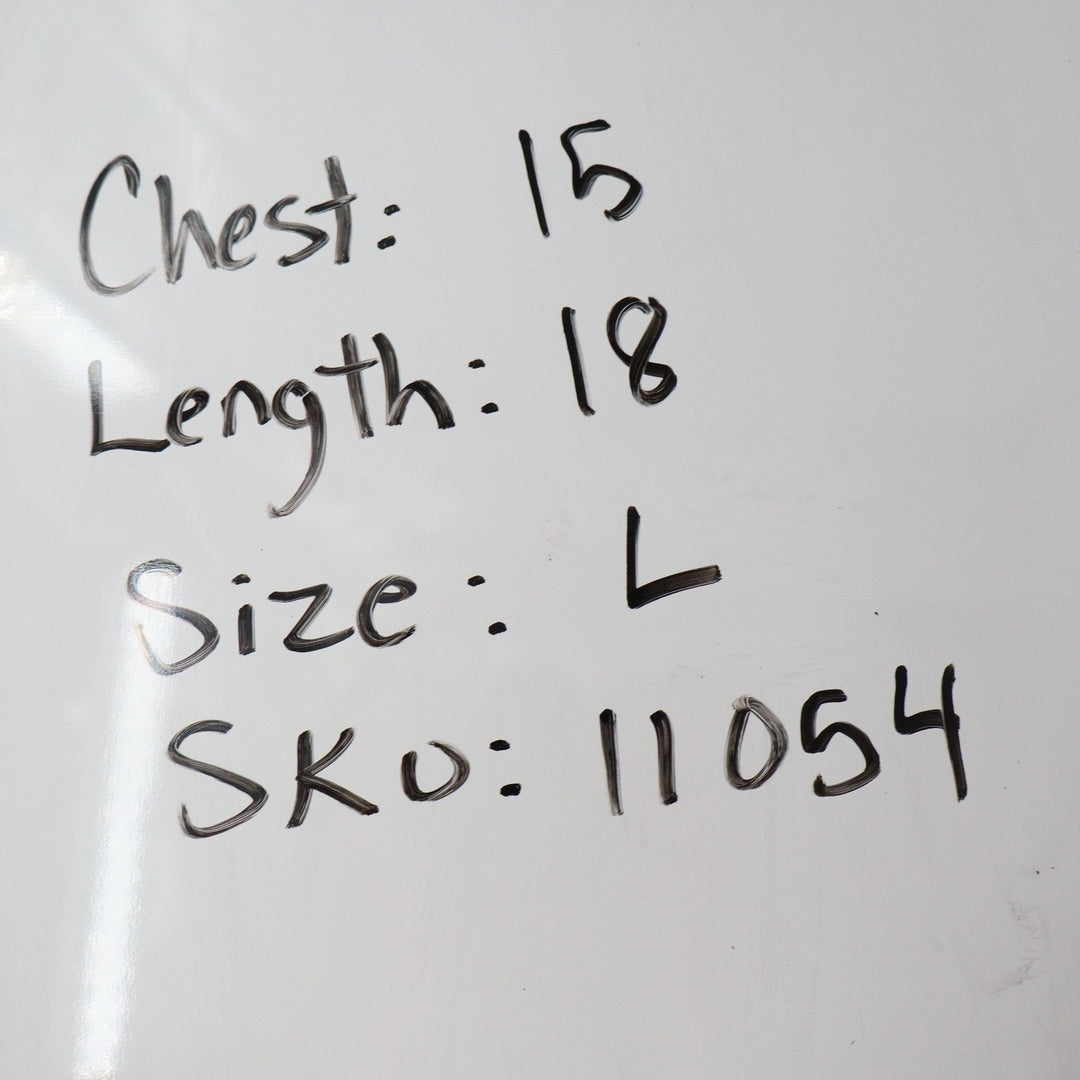 Chest: 15
Length: 18
Size: L
SKU: 11054